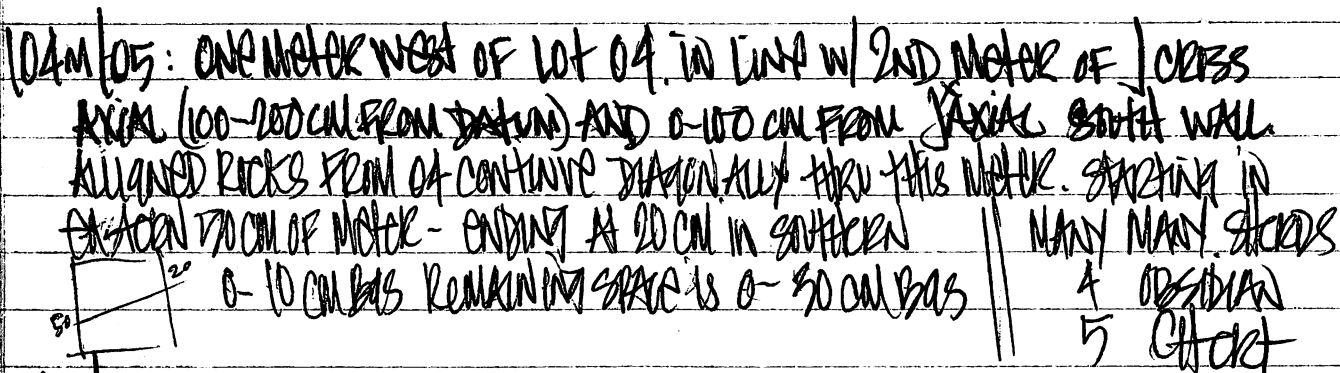 104M/05: ONE METER WEST OF LOT 04. IN LINE W/ 2ND METER OF CROSS
AXIAL (100-200 CM FROM DATUM) AND 0-100 CM FROM AXIAL SOUTH WALL.
ALLIGNED ROCKS FROM 04 CONTINUE DIAGONALLY THRU THIS METER. STARTING IN
EASTERN 50 CM OF METER - ENDING AT 20 CM IN SOUTHERN
MANY MANY SHERDS
20
0-10 CM BGS REMAINING SPACE IS 0-30 CM BGS
4 OBSIDIAN
50
5 CHERT